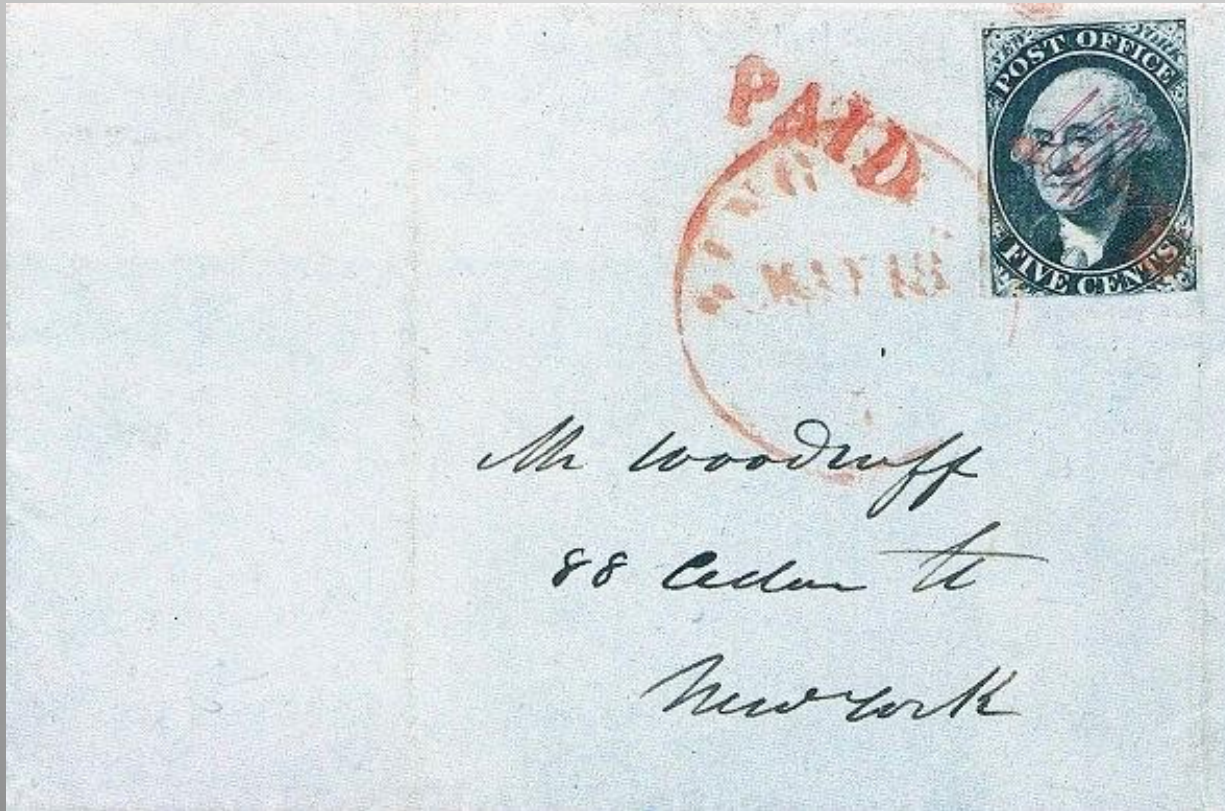 NEW YORK
POST OFFICE
FIVE CENTS
PAID
Mr Woodruff
88 Cedar St
New York